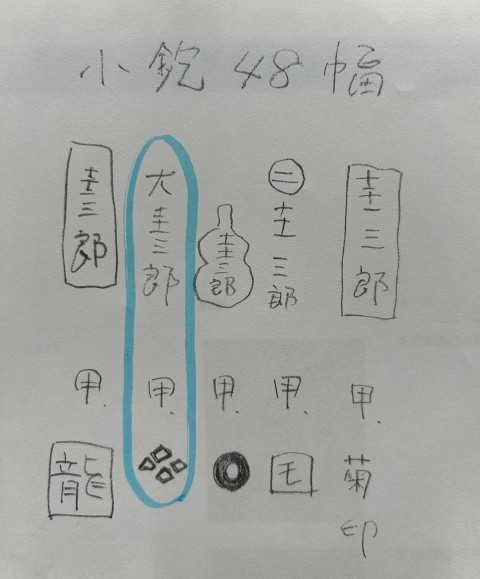 小鉋48幅
圭三郎
甲、
菊印
㊁圭三郎
甲、
圭三郎
甲、
大圭三郎
甲、
圭三郎
甲、
龍